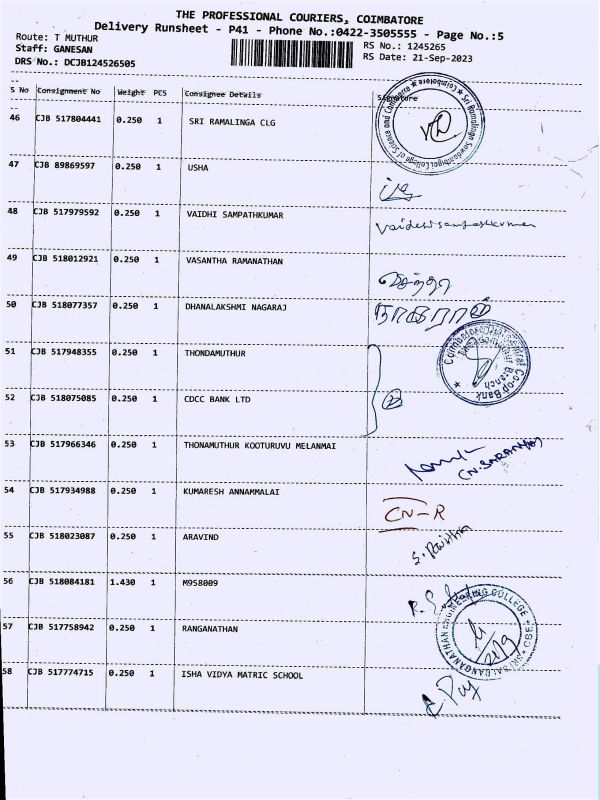 THE PROFESSIONAL COURIERS, COIMBATORE
Delivery Runsheet - P41 - Phone No.:0422-3505555 - Page No.:5
Route: T MUTHUR
Staff: GANESAN
DRS No.: DCJB124526505
RS No.: 1245265
RS Date: 21-Sep-2023
S No Consignment No Weight PCS Consignee Details Signature
46 CJB 517804441 0.250 1 SRI RAMALINGA CLG
47 CJB 89869597 0.250 1 USHA
48 CJB 517979592 0.250 1 VAIDHI SAMPATHKUMAR
49 CJB 518012921 0.250 1 VASANTHA RAMANATHAN
50 CJB 518077357 0.250 1 DHANALAKSHMI NAGARAJ நாகராஜ்
51 CJB 517948355 0.250 1 THONDAMUTHUR
52 CJB 518075085 0.250 1 CDCC BANK LTD 2
53 CJB 517966346 0.250 1 THONAMUTHUR KOOTURUVU MELANMAI
54 CJB 517934988 0.250 1 KUMARESH ANNAMMALAI CN-R
55 CJB 518023087 0.250 1 ARAVIND
56 CJB 518084181 1.430 1 M958009
57 CJB 517758942 0.250 1 RANGANATHAN
58 CJB 517774715 0.250 1 ISHA VIDYA MATRIC SCHOOL